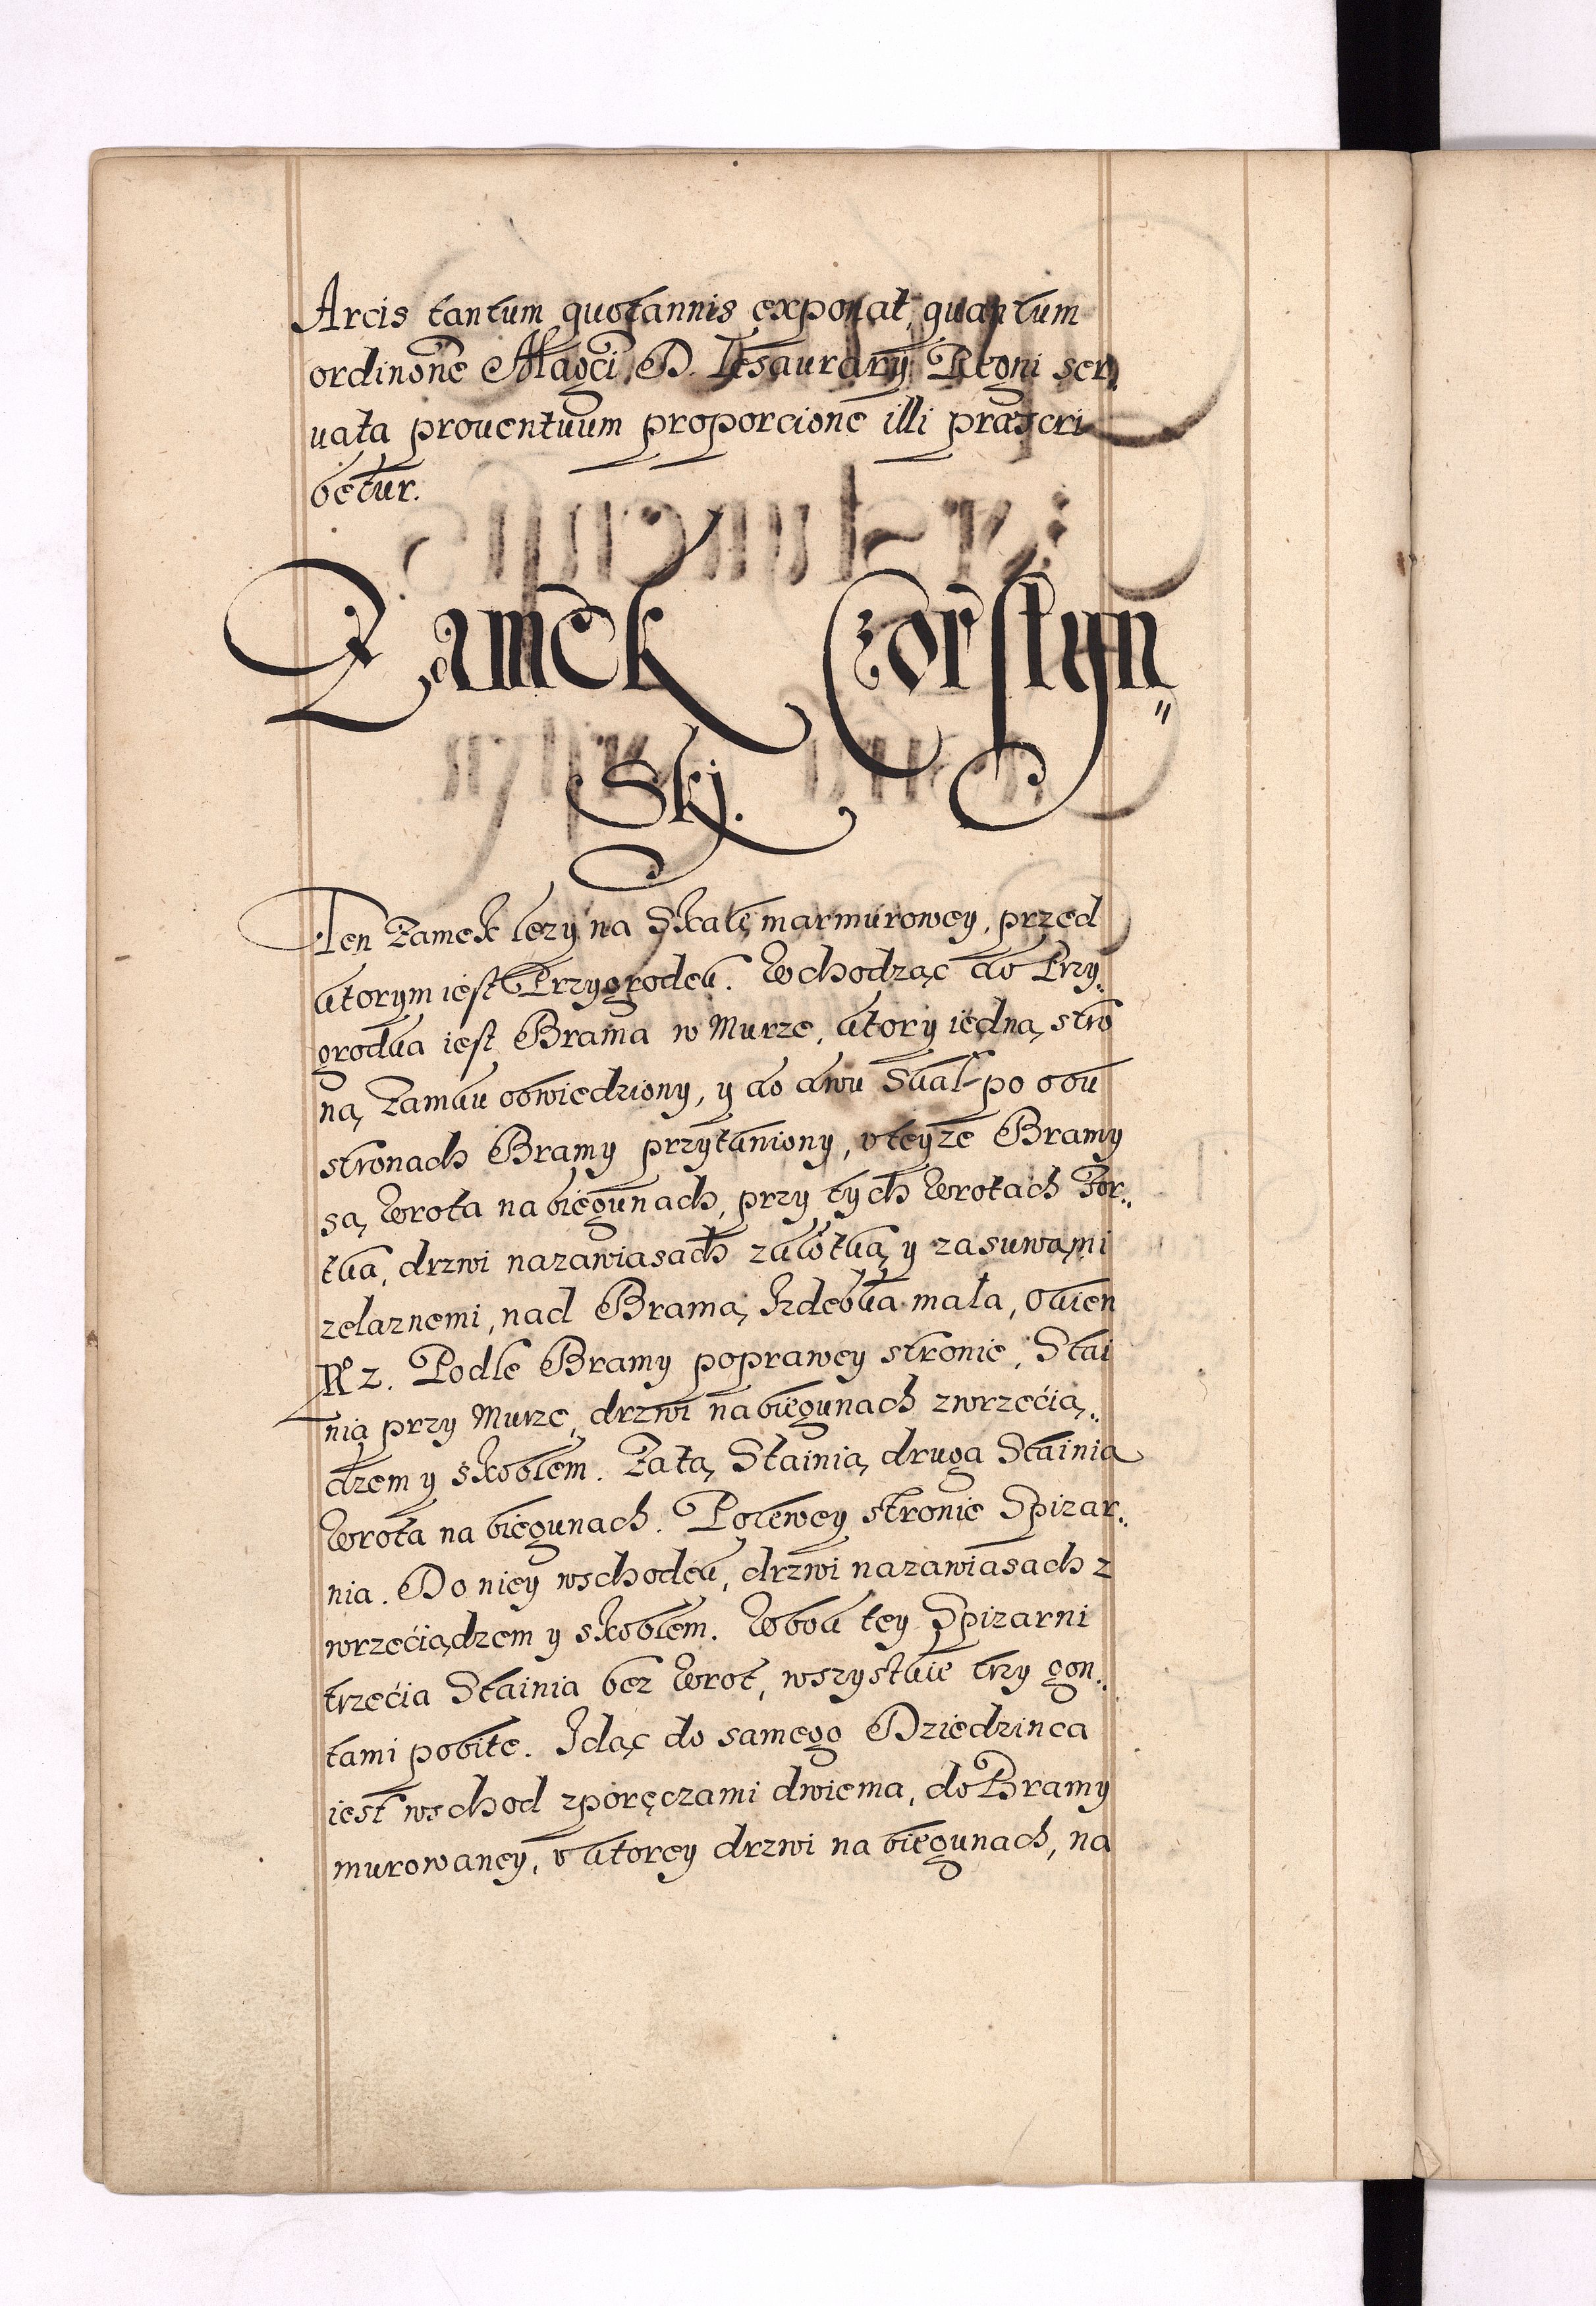 Arcis tantum quotannis exponat, quantum
ordinone Magci D. Thesaurary Regni ser
uata prouentuum proporcione illi præscri
betur.
Zamek Czorsztyn
Skj.
Ten Zamek lezy na Skale marmurowey, przed
ktorym iest Przygrodek. Wchodząc do Przy
grodka iest Brama w Murze, ktory iedną stro
ną Zamku obwiedziony, y do dwu Skał po obu
stronach Bramy przytkniony, v teyze Bramy
są Wrota na biegunach, przy tych Wrotach For
tka, drzwi na zawiasach z kłotką y zasuwami
zelaznemi, nad Bramą Izdebka mała, Okien
No 2. Podle Bramy po prawey stronie, Stai
nia przy Murze, drzwi na biegunach z wrzecią
dzem y skoblem. Za tą Stainią druga Stainia
Wrota na biegunach. Po lewey stronie Spizar
nia. Do niey wschodek, drzwi na zawiasach z
wrzeciądzem y skoblem. Wbok tey Spizarni
trzecia Stainia bez Wrot, wszystkie trzy gon
tami pobite. Idąc do samego Dziedzinca
iest wschod z poręczami dwiema, do Bramy
murowaney, v ktorey drzwi na biegunach, na